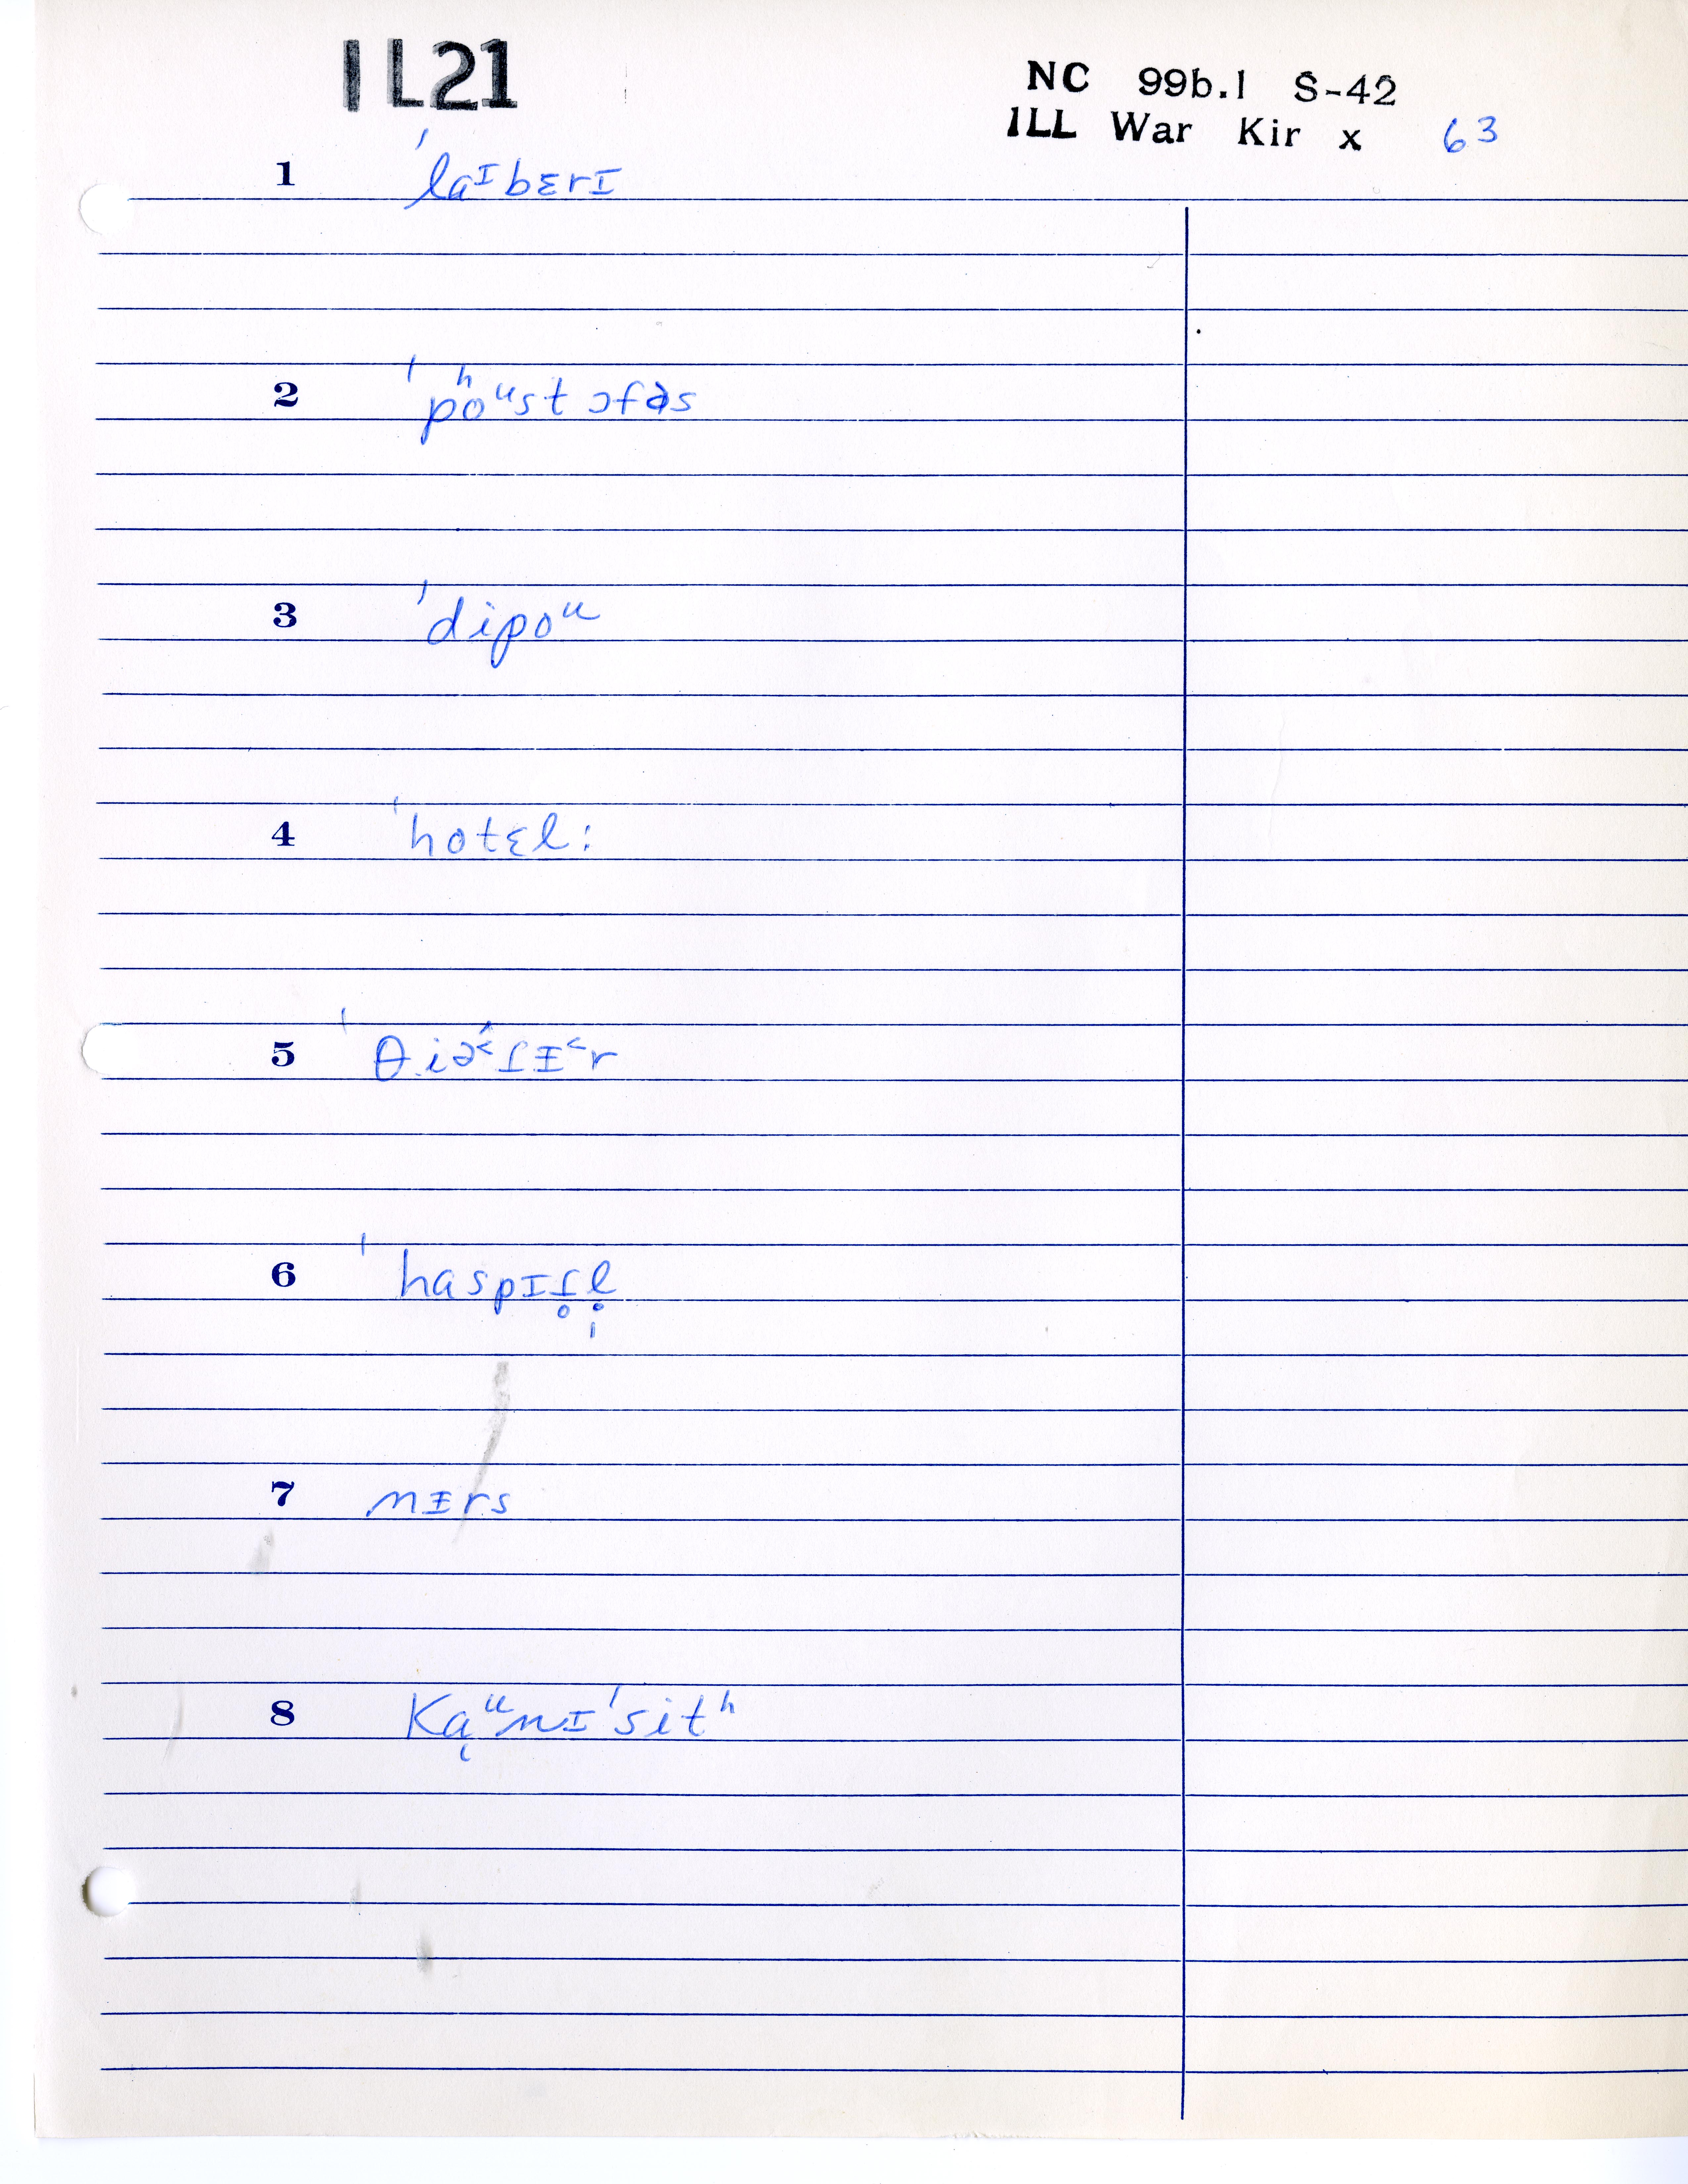 IL21
NC 99b.1 S-42
ILL War Kir x 63
1 ˈlaᴵbɛrɪ
2 ˈpʰoᵘst ɔfəs
3 ˈdipoᵘ
4 ˈhotɛl:
5 ˈθiə˂́ɾɪ̵˂r
6 ˈhaspɪɾ̥l̩
7 nɪ̵rs
8 Ka̜ᵘnɪˈsitʰ